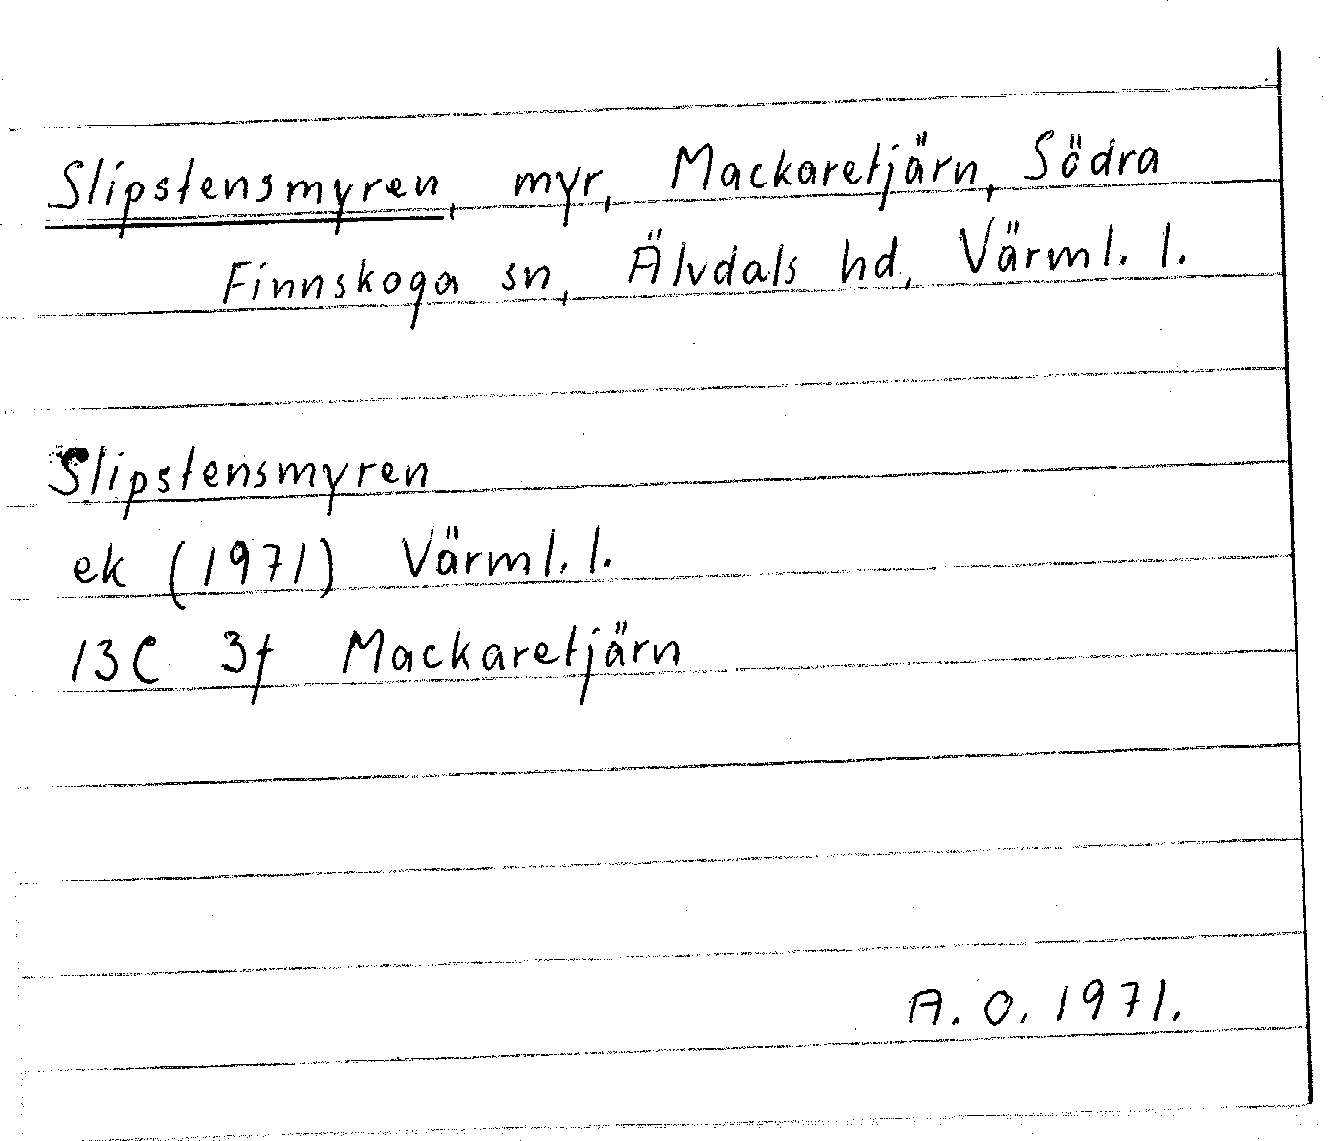 Slipstensmyren, myr, Mackaretjärn, Södra
Finnskoga sn, Älvdals hd, Värml. l.
Slipstensmyren
ek (1971) Värml. l.
13C 3f Mackaretjärn
A. O. 1971.